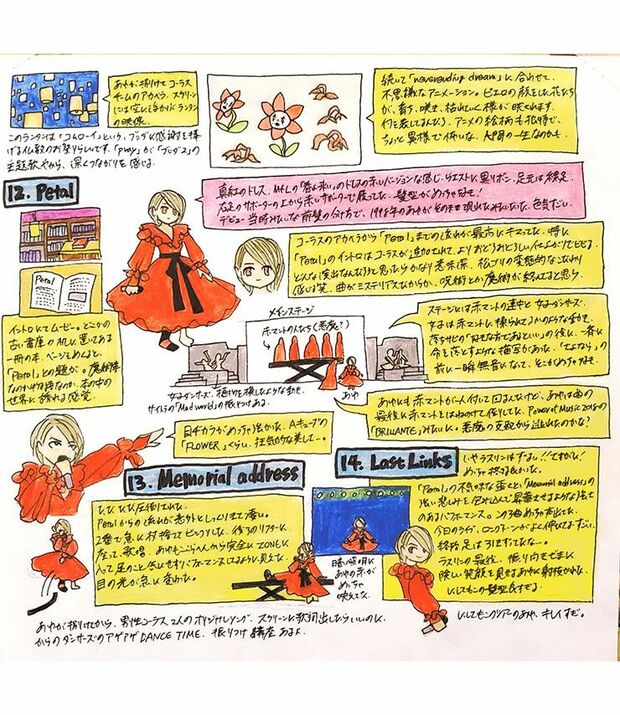 あやが捌けて コーラス
チームのアカペラ。スクリーン
には空に浮かぶランタン
の映像。
このランタンは「コムローイ」という、ブッダに感謝を捧
げる仏教のお祭りらしいです。「pray」が「ブッダ2」の
主題歌やから、深くつながりを感じる。
続いて「neverending dream」に合わせて、
不思議なアニメーション。ピエロの顔をした花たち
が、育ち、咲き、枯れていく様が映されます。
何を表してるんやろ。アニメの絵柄も独特で、
ちょっと異様で怖いな。人間の一生なのかも。
12. Petal
真紅のドレス。
のドレスの赤いバージョンな感じ。ウエストに黒リボン、足元は裸足。
右足のサポーターの上から赤いサポーターで座ってた。髪型がめっちゃ好き!
デビュー当時みたいな前髪の分け方で、1998年のあやがそのまま現れたみたいだった。色気だし。
コーラスのアカペラから「Petal」までの流れが最高にキマってた。特に
「Petal」のイントロはコーラスが追加されてて、よりおどろおどろしい
どんな演出なんだろうと思ったらかなり意味深。松グリの変態的なこだわり
感じる笑。曲がミステリアスだからか、呪術とか魔術が絡んでると思う。
Petal
イントロにてムービー。どこかの
古い書斎の机に置いてある
一冊の本。ページをめくると、
「Petal」との題が。魔術陣
なのか何か。本の中の
世界に誘われる感覚。
メインステージ
赤マントの人たち(悪魔?)
あや
女子ダンサーズ。植物を模したような動き。
サイレラの「Mad world」の振りつけある。
ステージには赤マントの連中と女子ダンサーズ。
女子は赤マントに操られてるかのような動きで、
落ちサビの「好きな方でおよいで」の後に、一斉に
命を落とすような描写があった。「さよなら」の
前に一瞬無音になって、どきかめちゃなも。
あやにも赤マントが一人付いて回るんだけど、あやは曲の
最後に赤マントをはねのけて倒してた。Power of Music 2018の
「BRILLANTE」みたいに。悪魔の支配から逃れたのかな?
目ヂカラがめっちゃ強かった。Aキューブの
「FLOWER」くらい。狂気的な美しさ…。
13. Memorial address
ひたひた圧倒された。
Petalからの流れが意外としっくりきて凄い。
2番で急に杖捨ててビックリした。後ろのリフターに
座って歌唱。あやもこらへんから完全にZONEに
入って足のこと気にせずパフォーマンスしてるように見えた。
目の光が急に変わった。
暗い映像に
あやの赤が
めっちゃ
映えてた。
14. Last Links
いやラスリンはずるい!!ですかい!
めっちゃ終わるかいた。
「Petal」の不気味な歪みと「Memorial address」の
強い悲しみをのみ込んで昇華させるような強さ
のあるパフォーマンス。この曲めっちゃ声出てた。
今日のライブ、ロングトーンがよく伸びてますごい。
終始足は引きずってたなー。
ラスリンの最後、振り向きざまに
険しい笑顔を見せるあやに射抜かれた。
にしてもこの髪型良すぎる。
にしてもこのツアーのあや、キレイすぎ。
あやが捌けてから、男性コーラス2人のオリジナルソング。スクリーンに歌詞出したらいいのに。
からのダンサーズのアゲアゲDANCE TIME。振りつけ講座あるよ。